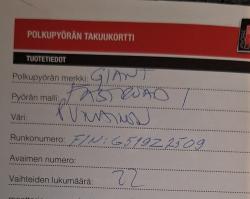 POLKUPYÖRÄN TAKUUKORTTI
TUOTETIEDOT
Polkupyörän merkki: GIANT
Pyörän malli: FASTROAD 1
Väri: PUNAINEN
Runkonumero: FIN: G519Z2509
Avaimen numero:
Vaihteiden lukumäärä: 22